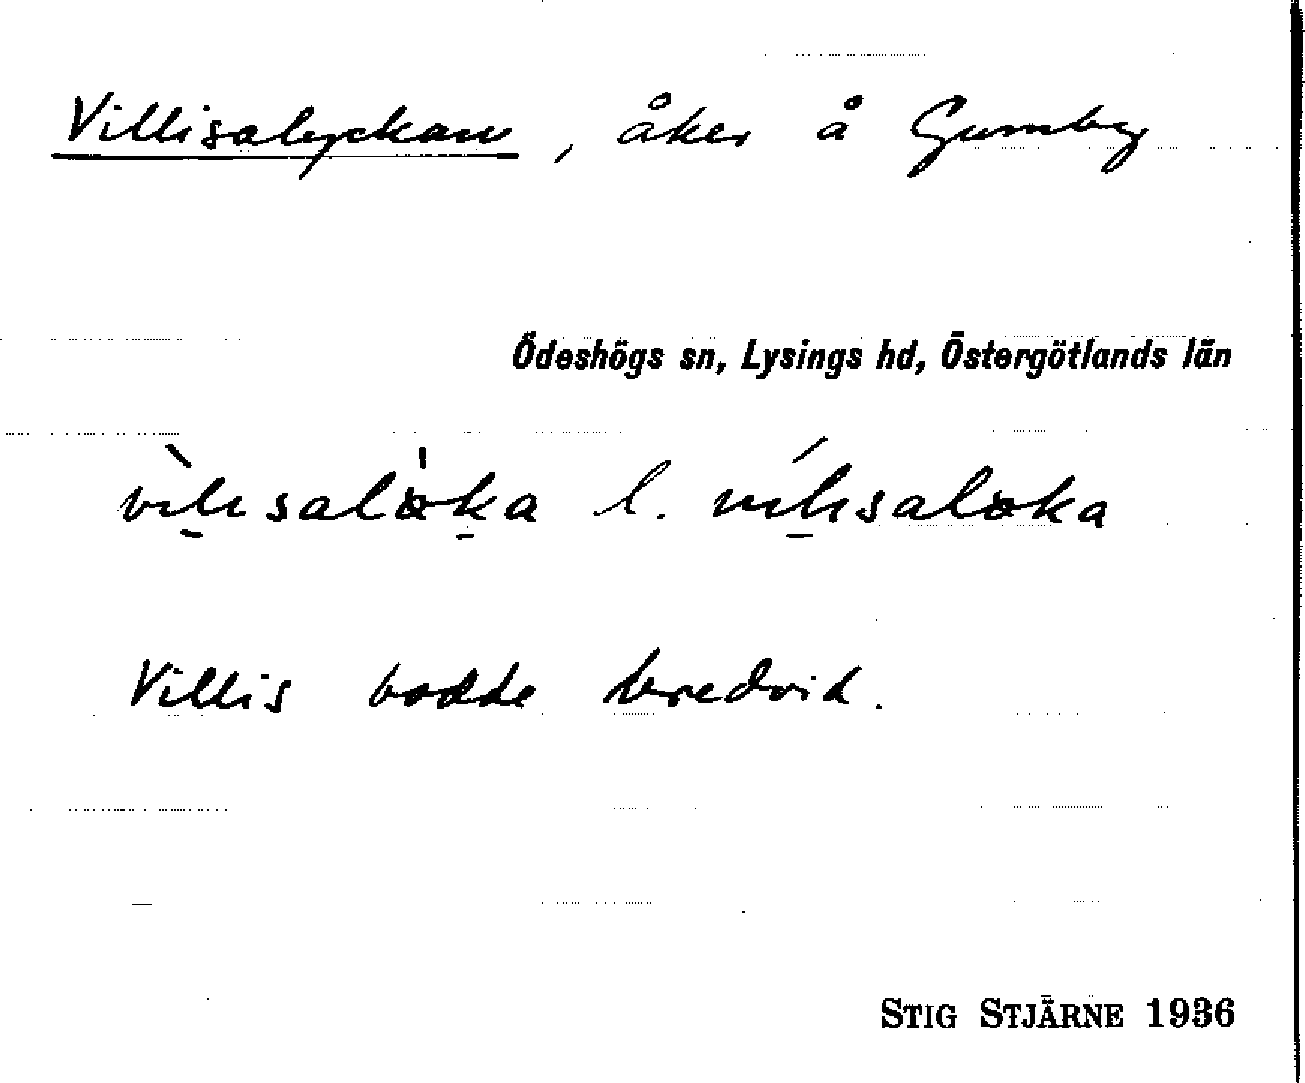 Villisalyckan, åker å Gumby
Ödeshögs sn, Lysings hd, Östergötlands län
vìlisalöka l. vílisaloka
Villis bodde bredvid.
STIG STJÄRNE 1936